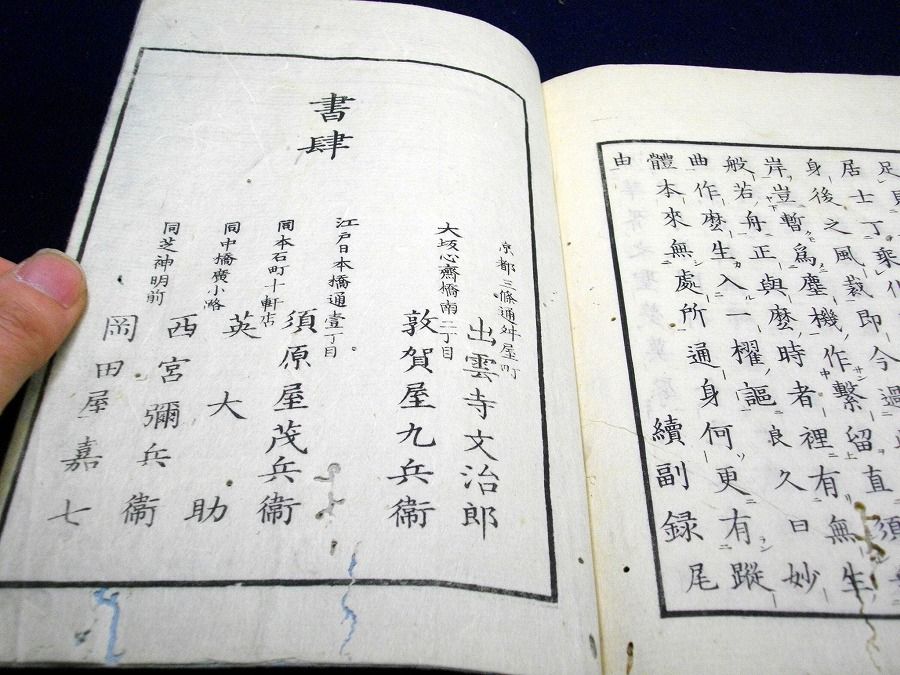 足
居士丁乘化
身後之風裁即今過
岸豈暫爲塵機作繋留直須
般若舟正與麼時者裡有無生
曲作麼生入一櫂謳良久日妙
體本來無處所通身何更有蹤
由
續副録尾
書肆
京都三條通舛屋町
出雲寺文治郎
大坂心齋橋南二丁目
敦賀屋九兵衞
江戸日本橋通壹丁目
須原屋茂兵衞
同本石町十軒店
英大助
同中橋廣小路
西宮彌兵衞
同芝神明前
岡田屋嘉七